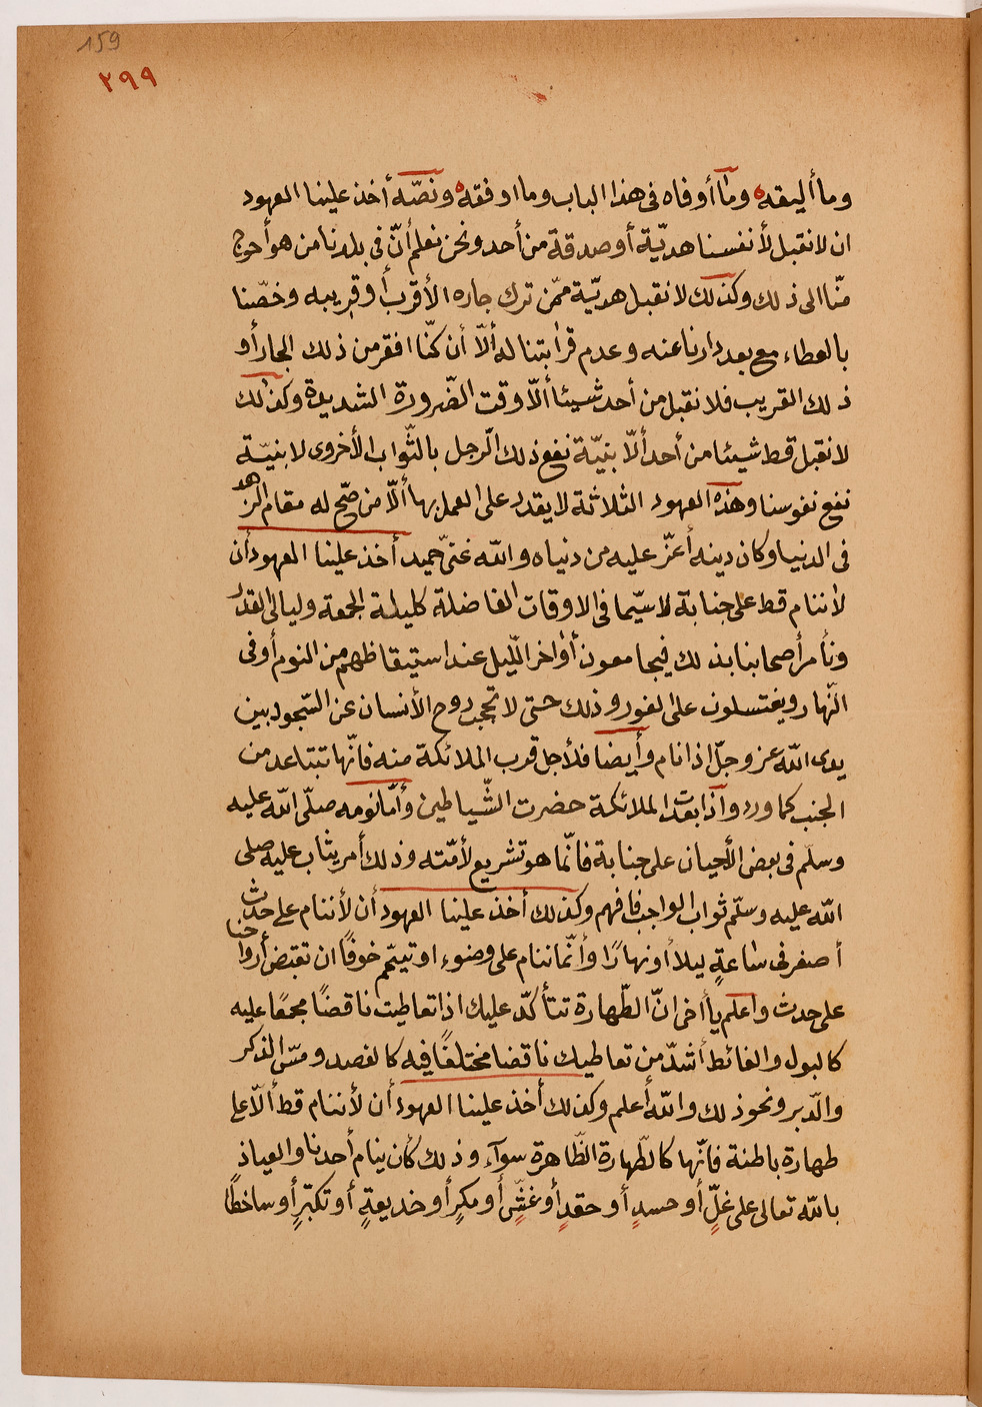 159
٢٩٩
وما أليقه وما أوفاه فى هذا الباب وما اوفقه ونصّه أخذ علينا العهود
ان لا نقبل لأنفسنا هديّة أو صدقة من أحد ونحن نعلم أنّ فى بلدنا من هو أحوج
منّا الى ذلك وكذلك لا نقبل هديّة ممّن ترك جاره الأقرب أو قريبه وخصّنا
بالعطاء مع بعد دارنا عنه وعدم قرابتنا له ألّا أن كنّا افقر من ذلك الجار أو
ذلك القريب فلا نقبل من أحد شيئا ألّا وقت الضّرورة الشديدة وكذلك
لا نقبل قط شيئا من أحد ألّا بنيّة نفع ذلك الرّجل بالثّواب الأخروى لا بنيّة
نفع نفوسنا وهذه العهود الثلاثة لا يقدر على العمل بها ألّا من صّح له مقام الزهد
فى الدنيا وكان دينه أعزّ عليه من دنياه والله غنىّ حميد أخذ علينا العهود أن
لا ننام قط على جنابة لا سيّما فى الاوقات الفاضلة كليلة الجمعة وليالى القدر
ونأمر أصحابنا بذلك فيجامعون أواخر اللّيل عند استيقاظهم من النوم أو فى
النّهار ويغتسلون على الفور وذلك حتى لا تحجب روح الأنسان عن السّجود بين
يدى الله عز وجلّ اذا نام وأيضا فلأجل قرب الملائكة منه فانّها تبتاعد من
الجنب كما ورد واذا بعدت الملائكة حضرت الشّياطين وأمّا نومه صلّى الله عليه
وسلم فى بعض الأحيان على جنابة فانّما هو تشريع لأمّته وذلك أمر يثاب عليه صلى
الله عليه وسلّم ثواب الواجب فافهم وكذلك أخذ علينا العهود أن لا ننام على حدث
أصغر فى ساعةٍ ليلا أو نهارًا وأنّما ننام على وضوء او تيمّم خوفًا ان تقبض أرواحنا
على حدث واعلم يا أخى انّ الطّهارة تتأكّد عليك اذا تعاطيت ناقضًا مجمعًا عليه
كالبول والغائط أشدّ من تعاطيك ناقضا مختلفًا فيه كالفصد ومسّ الذكر
والدّبر ونحو ذلك والله أعلم وكذلك أخذ علينا العهود أن لا ننام قط ألّا على
طهارة باطنة فانّها كالطّهارة الظّاهرة سوآء وذلك كأن ينام أحدنا والعياذ
بالله تعالى على غلٍّ أو حسدٍ أو حقدٍ أو غشٍّ أو مكرٍ أو خديعةٍ أو تكبّرٍ أو ساخطًا